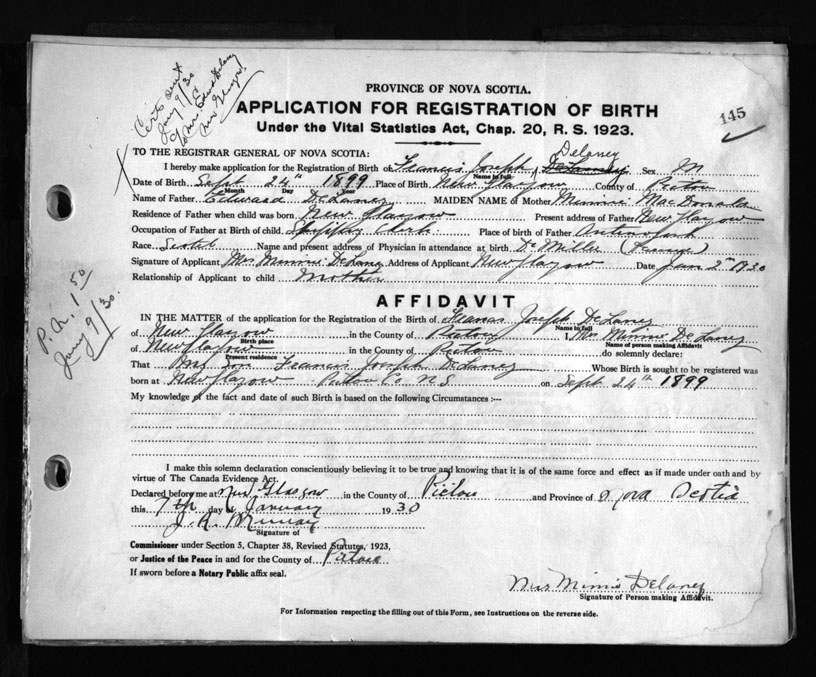 Certs sent
Jany 9/30
to Mr. Edwd Delaney
New Glasgow
145
PROVINCE OF NOVA SCOTIA.
APPLICATION FOR REGISTRATION OF BIRTH
Under the Vital Statistics Act, Chap. 20, R. S. 1923.
TO THE REGISTRAR GENERAL OF NOVA SCOTIA:
Delaney
I hereby make application for the Registration of Birth of Francis Joseph, Sex M
Name in full
Date of Birth Sept 24th 1899 Place of Birth New Glasgow County of Pictou
Month Day Year
Name of Father Edward DeLaney MAIDEN NAME of Mother Minnie MacDonald
Residence of Father when child was born New Glasgow Present address of Father New Glasgow
Occupation of Father at Birth of child, Clerk Place of birth of Father
Race Scotch Name and present address of Physician in attendance at birth Dr Miller
Signature of Applicant Mrs Minnie DeLaney Address of Applicant New Glasgow Date Jan 2nd 1930
Relationship of Applicant to child Mother
P.A. 1.50
Jany 9/30.
AFFIDAVIT
IN THE MATTER of the application for the Registration of the Birth of Francis Joseph DeLaney
Name in full
of New Glasgow in the County of Pictou, Mrs Minnie DeLaney
Birth place Name of person making Affidavit
of New Glasgow in the County of Pictou do solemnly declare:
Present residence
That my son Francis Joseph DeLaney Whose Birth is sought to be registered was
born at New Glasgow Pictou Co. N.S on Sept 24th 1899
My knowledge of the fact and date of such Birth is based on the following Circumstances :—
I make this solemn declaration conscientiously believing it to be true and knowing that it is of the same force and effect as if made under oath and by
virtue of The Canada Evidence Act.
Declared before me at New Glasgow in the County of Pictou and Province of Nova Scotia
this 7th day of January 1930
Murray
Signature of
Commissioner under Section 5, Chapter 38, Revised Statutes, 1923,
or Justice of the Peace in and for the County of Pictou
If sworn before a Notary Public affix seal.
Mrs Minnie Delaney
Signature of Person making Affidavit.
For Information respecting the filling out of this Form, see Instructions on the reverse side.